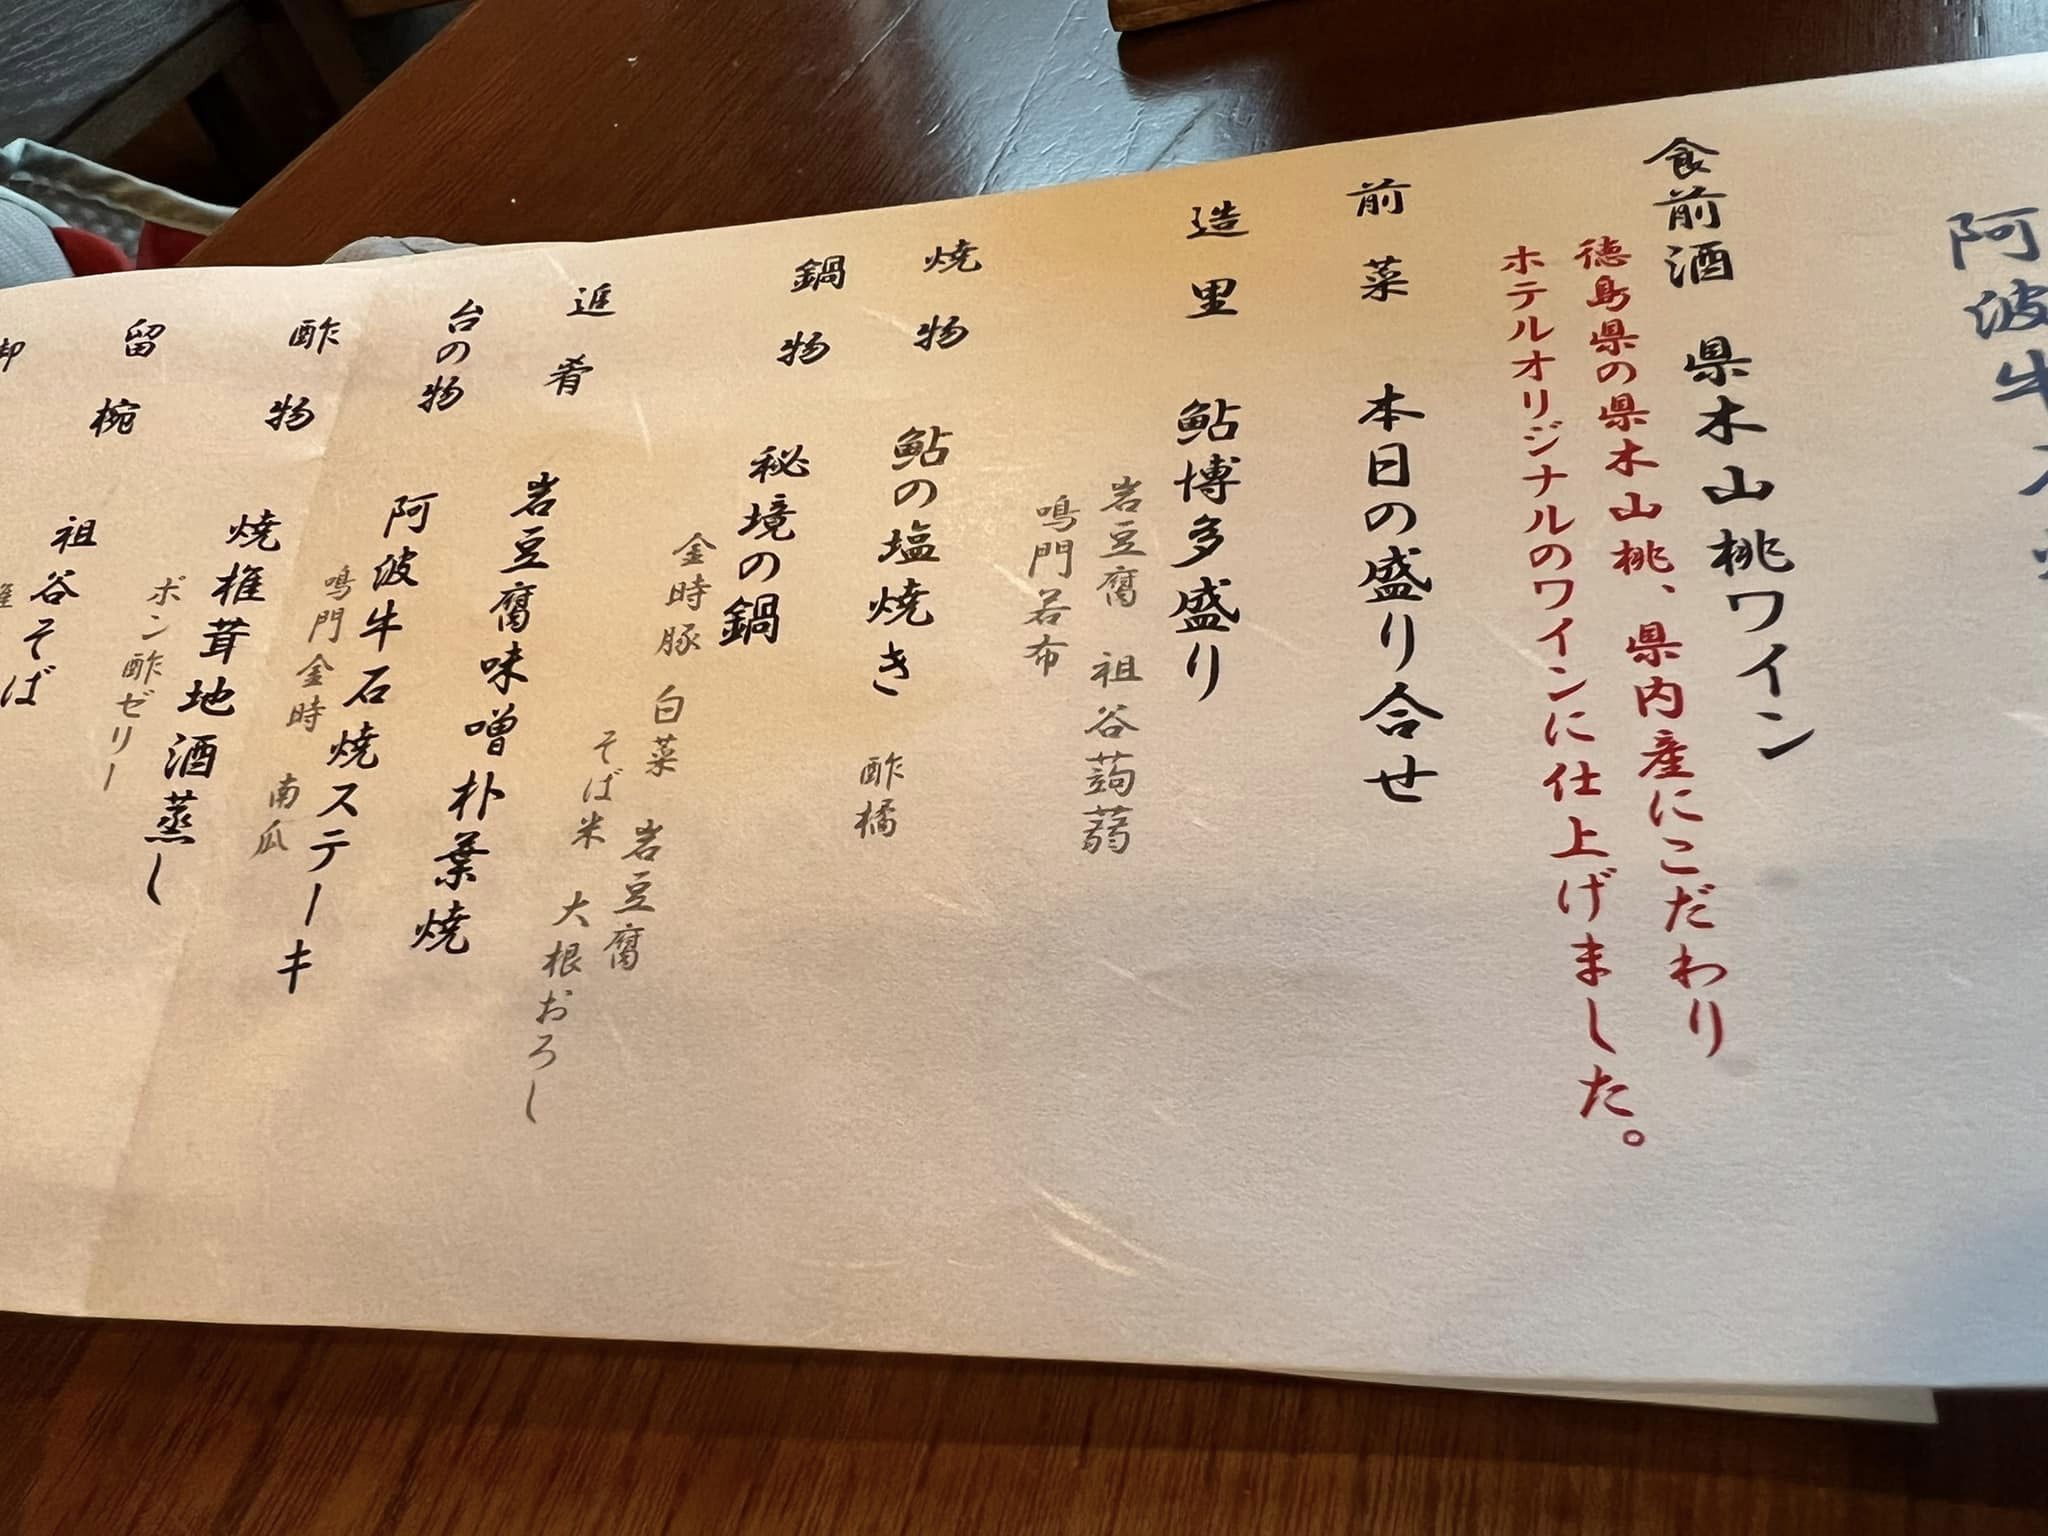 阿波牛石焼
食前酒 県木山桃ワイン
徳島県の県木山桃、県内産にこだわり
ホテルオリジナルのワインに仕上げました。
前菜 本日の盛り合せ
造里 鮎博多盛り
岩豆腐 祖谷蒟蒻
鳴門若布
焼物 鮎の塩焼き 酢橘
鍋物 秘境の鍋
金時豚 白菜 岩豆腐
そば米 大根おろし
進肴 岩豆腐味噌朴葉焼
台の物 阿波牛石焼ステーキ
鳴門金時 南瓜
酢物 焼椎茸地酒蒸し
ポン酢ゼリー
留椀 祖谷そば